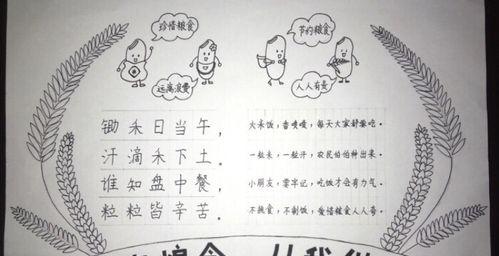 珍惜粮食
节约粮食
远离浪费
人人有责
锄禾日当午，
汗滴禾下土。
谁知盘中餐，
粒粒皆辛苦。
大米饭，香喷喷，每天大家都要吃。
一粒米，一粒汗，农民伯伯种出来。
小朋友，要牢记，吃饭才会有力气。
不挑食，不剩饭，爱惜粮食人人夸。